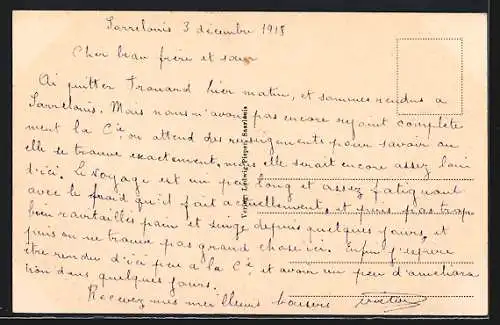 Sarrelouis 3 décembre 1918
Cher beau frère et sœur
Ai quitter hier matin, et sommes rendus a
Sarrelouis. Mais nous n'avons pas encore rejoint complète
ment la Cie, on attend des renseignements pour savoir ou
elle se trouve exactement, mais elle serait encore assez loin
d'ici. Le voyage est un peu long et assez fatiguant
avec le froid qu'il fait actuellement, et puis pas trop
bien ravitaillés pain et singe depuis quelques jours, et
puis on ne trouve pas grand chose ici. Enfin j'espère
être rendu d'ici peu a la Cie et avoir un peu d'améliora
tion dans quelques jours.
Recevez mes meilleurs baisers
Verlag: Ludwig Pieper, Saarlouis